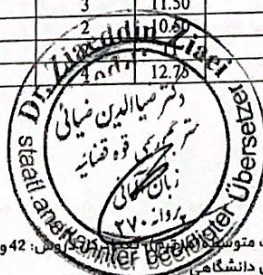 3 11.50
2 10.50
4 12.75
Dr. Ziaeddin Ziaei
staatl anerkannter beeidigter Übersetzer
دکتر ضیاالدین ضیائی
مترجم رسمی قوه قضائیه
زبان آلمانی
پروانه ۲۷۰
42 و
دانشگاهی